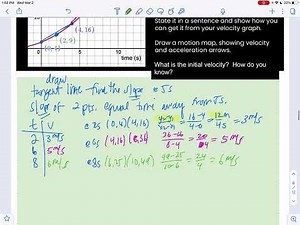 1:04 PM Wed Mar 2
State it in a sentence and show how you
can get it from your velocity graph.
(4,16)
Draw a motion map, showing velocity
and acceleration arrows.
(2,9)
What is the initial velocity? How do you
know?
0 5 10
time (s)
draw
tangent line find the slope @ 5s
slope of 2 pts. equal time away from 5s.
t | V
2 3m/s @2s (0,4)(4,16) = 16-4/4-0 = 12m/4s = 3m/s
6 5m/s @6s (4,16) 36-16/8-4 = 20/4 = 5 m/s
8 6m/s @8s (6,25) 49-25/10-6 = 24/4 = 6 m/s